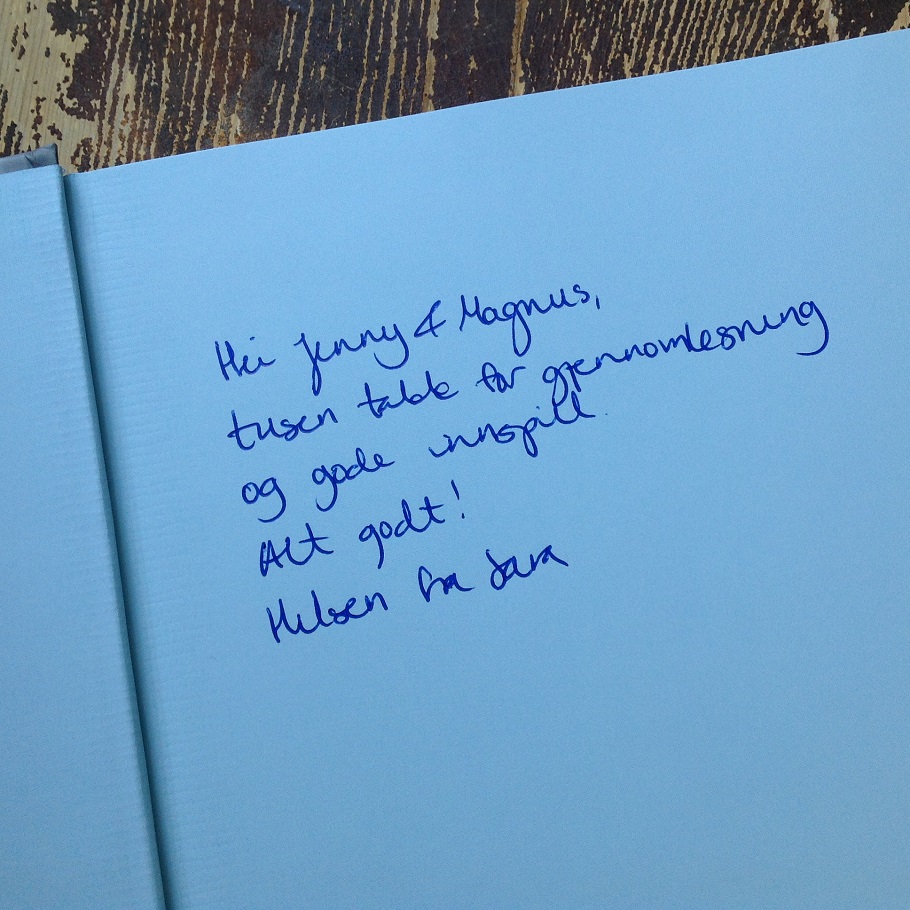 Hei Jenny & Magnus,
tusen takk for gjennomlesning
og gode innspill.
Alt godt!
Hilsen fra